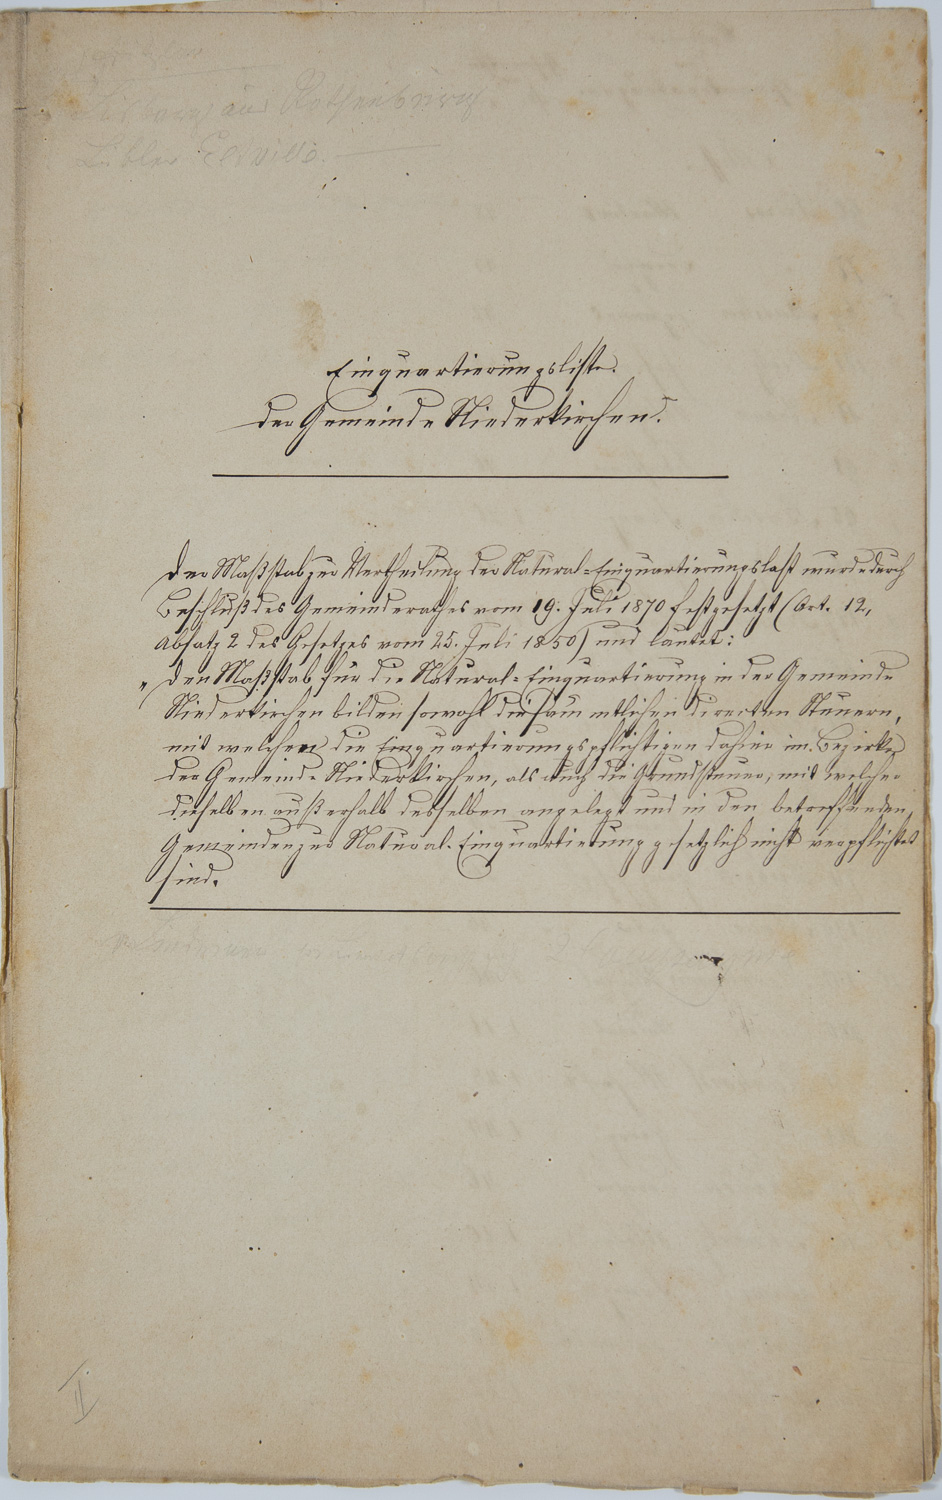 aus Rothenburg
Einquartierungsliste.
der Gemeinde Niederkirchen.
Der Maßstab zur Vertheilung der Natural-Einquartierungslast wurde durch
Beschluß des Gemeinderathes vom 19. Juli 1870 festgesetzt (Art. 12,
Absatz 2 des Gesetzes vom 25. Juli 1850) und lautet:
„Den Maßstab für die Natural-Einquartierung in der Gemeinde
Niederkirchen bilden sowohl die säumtlichen directen Steuern,
mit welchen die Einquartierungspflichtigen dahier im Bezirke
der Gemeinde Niederkirchen, als auch die Grundsteuer, mit welcher
dieselben außerhalb desselben angelegt und in den betreffenden
Gemeinden zur Natural-Einquartierung gesetzlich nicht verpflichtet
sind.
II